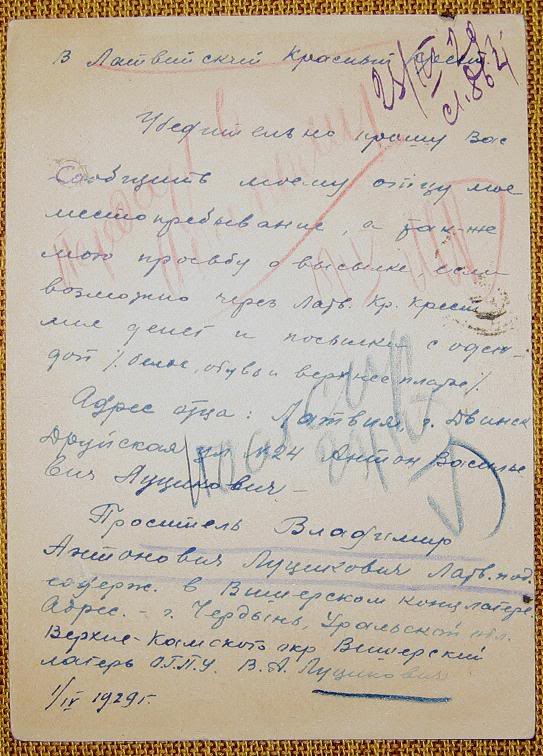 В Латвийский Красный Крест
23/IV 29
Убедительно прошу Вас
Сообщить моему отцу мое
местопребывание, а так-же
мою просьбу о высылке если
возможно через Латв. Кр. Крест
мне денег и посылки с одеж-
дой /. белье, обувь и верхнее платье /.
Адрес отца: Латвия, г. Двинск
Друйская ул №24 Антон Василье
вич Луцикович –
Проситель Владимир
Антонович Луцикович Латв. под.
содерж. в Вишерском концлагере
Адрес. – г. Чердынь, Уральской обл.
Верхне-Камского окр Вишерский
лагерь О.Г.П.У. В. А. Луцикович
1/IV 1929 г.